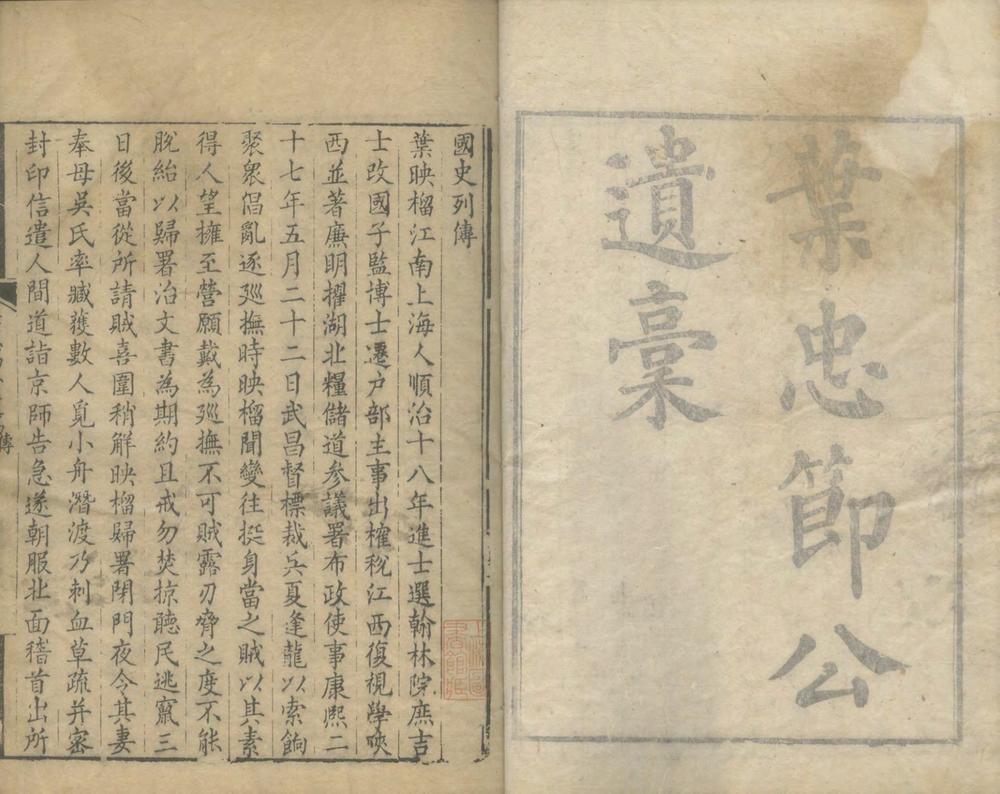 葉忠節公
遺稾
國史列傳
葉映榴江南上海人順治十八年進士選翰林院庶吉
士改國子監博士遷户部主事出榷税江西復視學陜
西並著廉明擢湖北糧儲道參議署布政使事康熙二
十七年五月二十二日武昌督標裁兵夏逢龍以索餉
聚衆倡亂逐廵撫時映榴聞變往挺身當之賊以其素
得人望擁至營願戴為廵撫不可賊露刃脅之度不能
脫紿以歸署治文書為期約且戒勿焚掠聽民逃竄三
日後當從所請賊喜圍稍解映榴歸署閉門夜令其妻
奉母吳氏率臧獲數人覓小舟潛渡乃刺血草疏并密
封印信遣人間道詣京師告急遂朝服北面稽首出所
傳